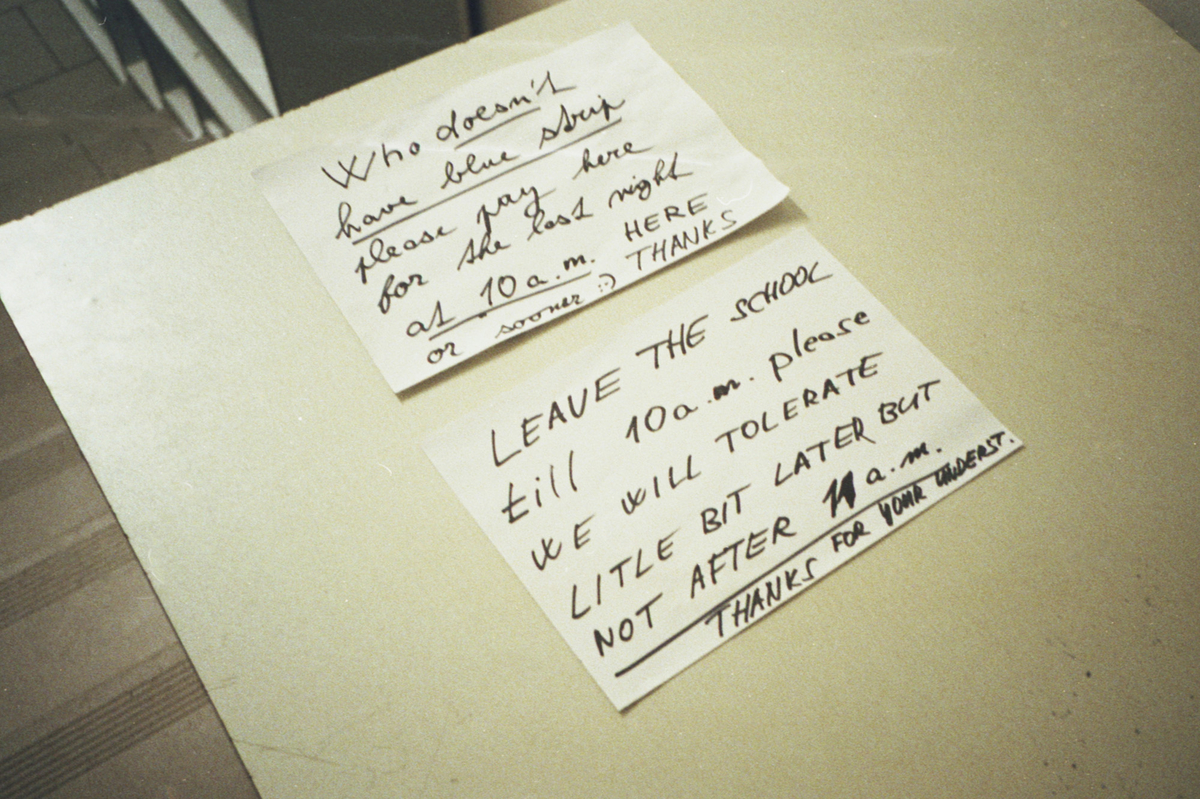 Who doesn't
have blue strip
please pay here
for the last night
at 10 a.m. HERE
or sooner :) THANKS
LEAVE THE SCHOOL
till 10 a.m. please
WE WILL TOLERATE
LITLE BIT LATER BUT
NOT AFTER 11 a.m.
THANKS FOR YOUR UNDERST.